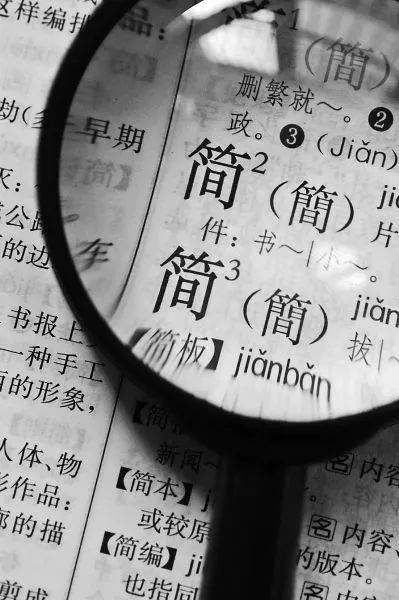 这样编排
品:
简¹(簡)
删繁就~。❷
政。❸(Jiǎn)
早期
简²(簡)
片
件:书~|小~。
车
的边
简³(簡) jiǎn
拔|~
【简板】jiǎnbǎn
书报上
一种手工
的形象,
新闻~
名 内容
人体、物
【简本】
作品:
或较原
名 内容
的描
【简编】
的版本。
也指同